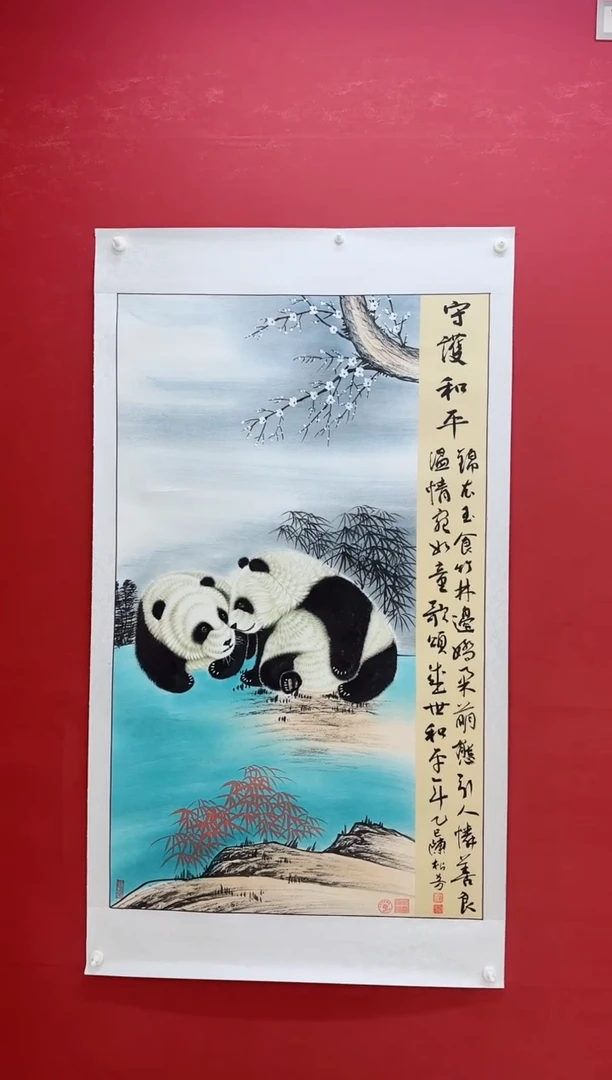 守護和平
錦衣玉食竹林邊嬌柔萌態引人憐善良
温情宛如童歌頌盛世和平年乙巳陳松芳